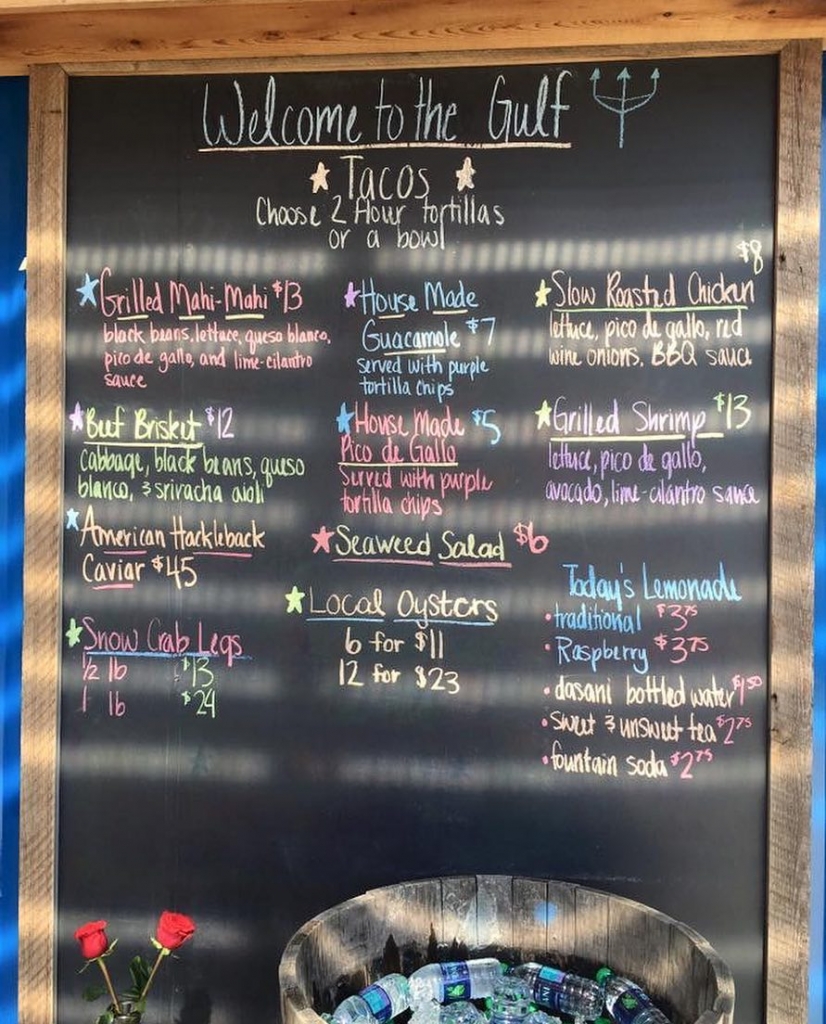 Welcome to the Gulf
Tacos
Choose 2 flour tortillas
or a bowl
Grilled Mahi-Mahi $13
black beans, lettuce, queso blanco,
pico de gallo, and lime-cilantro
sauce
House Made
Guacamole $7
served with purple
tortilla chips
$8
Slow Roasted Chicken
lettuce, pico de gallo, red
wine onions, BBQ sauce
Beef Brisket $12
cabbage, black beans, queso
blanco, & sriracha aioli
House Made $5
Pico de Gallo
Served with purple
tortilla chips
Grilled Shrimp $13
lettuce, pico de gallo,
avocado, lime-cilantro sauce
American Hackleback
Caviar $45
Seaweed Salad $6
Snow Crab Legs
1/2 lb $13
1 lb $24
Local Oysters
6 for $11
12 for $23
Today's Lemonade
• traditional $3.75
• Raspberry $3.75
• dasani bottled water $1.50
• sweet & unsweet tea $2.75
• fountain soda $2.75